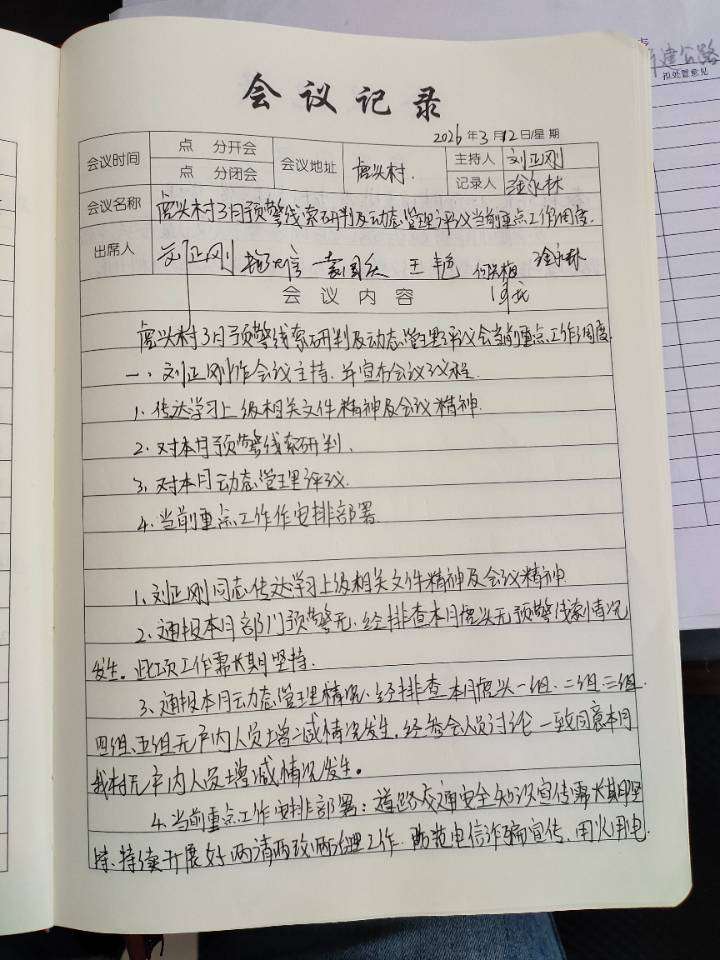 会议记录
2026年3月12日/星期
会议时间 点 分开会 会议地址 虎头村. 主持人 刘正刚
点 分闭会 记录人 涂永林
会议名称 虎头村3月预警线索研判及动态管理评议当前重点工作调度.
出席人 刘正刚 袁国 王艳 涂永林
会议内容
虎头村3月预警线索研判及动态管理评议会当前重点工作调度
一、刘正刚作会议主持.并宣布会议议程.
1.传达学习上级相关文件精神及会议精神.
2.对本月预警线索研判.
3.对本月动态管理评议.
4.当前重点工作作安排部署
1、刘正刚同志传达学习上级相关文件精神及会议精神
2.通报本月部门预警无.经排查本月虎头无预警线索情况
发生。此项工作需长期坚持.
3、通报本月动态管理情况.经排查本月虎头一组.二组.三组.
四组、五组无户内人员增减情况发生.经参会人员讨论一致同意本月
我村无户内人员增减情况发生。
4.当前重点工作安排部署:道路交通安全知识宣传需长期坚
持.持续开展好两清两改两治理工作.防范电信诈骗宣传.用火用电
建公路
拟处置意见